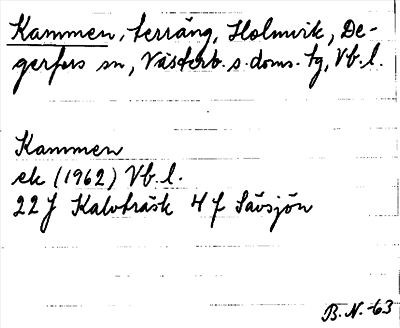 Kammen, terräng, Holmvik, De-
gerfors sn, Västerb. s. doms. tg, Vb. l.
Kammen
ek (1962) Vb. l.
22 J Kalvträsk 4 f Sävsjön
B. N. -63